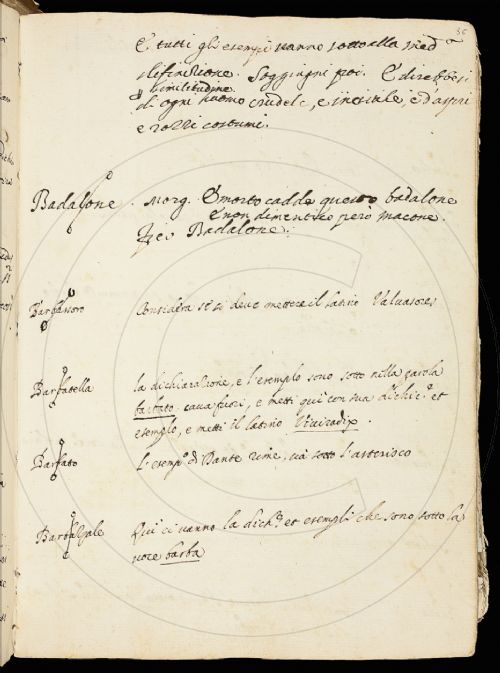 36
E tutti gli esempi vanno sotto alla med.a
definizione. Soggiugni poi. E direbbesi
p similitudine
di ogni huomo crudele, e incivile, e d'aspri
e rozzi costumi.
Badalone. Morg. E morto cadde questo badalone
E non dimenticò però Macone.
Badalone.
Barbassoro Considera se si deve mettere il latino Valvasores
Barbatella la dichiarazione, e l'esempio sono sotto nella parola
barbato. cava fuori, e metti qui con sua dichic.e et
esempio, e metti il latino Viviradix.
Barbato l'esemp.o di Dante rime, và sotto l'asterisco
Barbicale Qui ci vanno la dich.e et esempli che sono sotto la
voce barba